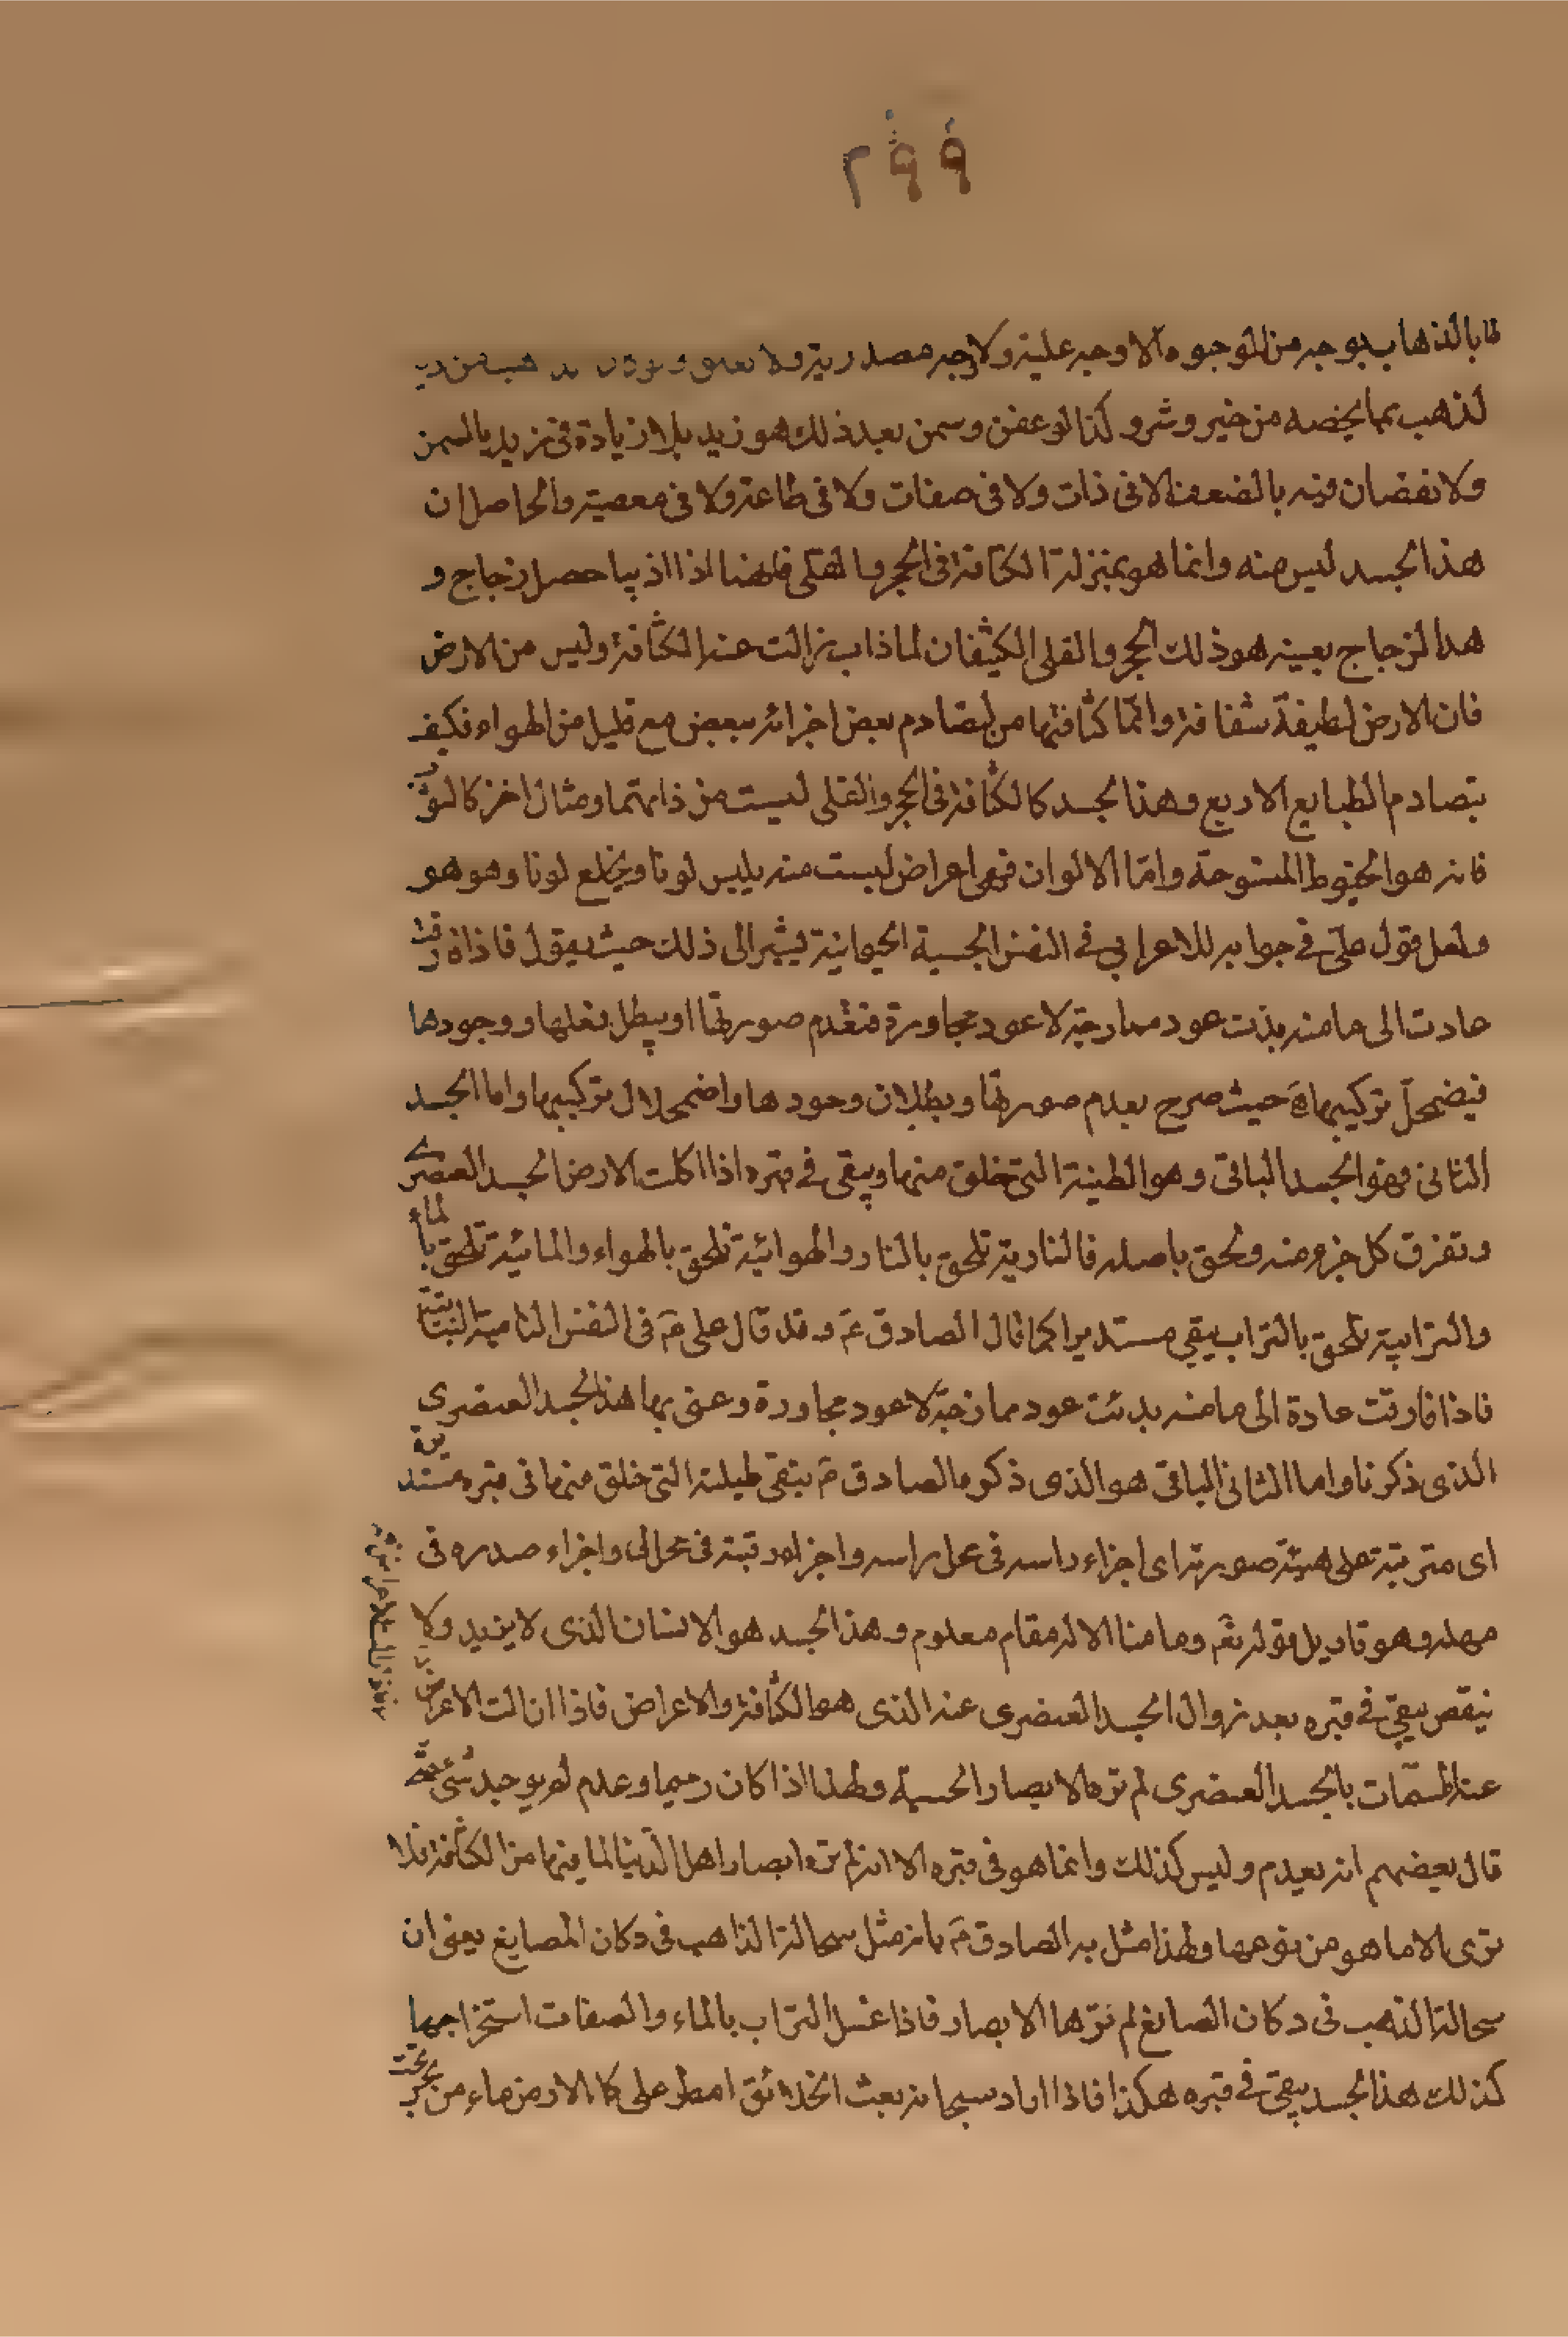 ٢٩٩
لها بالذهاب بوجه من الوجوه الا وجه علية ولا وجه مصدرية ولا
لذهب بما يخصه من خير وشر وكذا لو عفن وسمن بعد ذلك هو زيد بلا زيادة في زيد بالسمن
ولا نقصان فيه بالضعف لا في ذات ولا في صفات ولا في طاعة ولا في معصية والحاصل ان
هذا الجسد ليس منه وانما هو بمنزلة الكثافة في الحجر والقلى فانهما اذا اذيبا حصل زجاج و
هذا الزجاج بعينه هو ذلك الحجر والقلى الكثيفان لما ذاب زالت عنه الكثافة وليس من الارض
فان الارض لطيفة شفافة وانما كثافتها من تصادم بعض اجزائه ببعض مع قليل من الهواء فكيف
بتصادم الطبايع الاربع وهذا الجسد كالكثافة في الحجر والقلى ليست من ذاتهما ومثال اخر كالثوب
فانه هو الخيوط المنسوجة واما الالوان فهي اعراض ليست منه يلبس لونا ويخلع لونا وهو هو
ولعل قول علي في جوابه للاعرابي في النفس الحسية الحيوانية يشير الى ذلك حيث يقول فاذا فارقت
عادت الى ما منه بدئت عود ممازجة لا عود مجاورة فتعدم صورتها او يبطل فعلها ووجودها
فيضمحل تركيبها ه حيث صرح بعدم صورتها وبطلان وجودها واضمحلال تركيبها واما الجسد
الثاني فهو الجسد الباقي وهو الطينة التي خلق منها ويبقى في قبره اذا اكلت الارض الجسد العنصري
وتفرق كل جزء منه ولحق باصله فالنارية تلحق بالنار والهوائية تلحق بالهواء والمائية تلحق بالماء
والترابية تلحق بالتراب يبقي مستديرا كما قال الصادق ع وقد قال علي ع في النفس النامية النباتية
فاذا فارقت عادة الى ما منه بدئت عود ممازجة لا عود مجاورة وعنى بها هذا الجسد العنصري
الذي ذكرنا واما الثاني الباقي هو الذي ذكره الصادق ع تبقى طينته التي خلق منها في قبره مستديرة
اى مترتبة على هيئة صورته اى اجزاء راسه في محل راسه واجزاء رقبته في محل الى واجزاء صدره في
مهله وهو تاويل قوله تعم وما منا الا له مقام معلوم وهذا الجسد هو الانسان الذى لا يزيد ولا
ينقص يبقي في قبره بعد زوال الجسد العنصرى عنه الذى هو الكثافة والاعراض فاذا زالت الاعراض
عنه المسمات بالجسد العنصرى لم تره الابصار الحسية ولهذا اذا كان رميما وعدم لم يوجد شئ
قال بعضهم انه يعدم وليس كذلك وانما هو في قبره الا انه لم تره ابصار اهل الدنيا لما فيها من الكثافة فلا
ترى الا ما هو من نوعها ولهذا مثل به الصادق ع بانه مثل سحالة الذاهب في دكان المصايغ يعنى ان
سحالة الذهب في دكان الصايغ لم ترها الابصار فاذا غسل التراب بالماء والصفات استخراجها
كذلك هذا الجسد يبقي في قبره هكذا فاذا اراد سبحانه بعث الخلائق امطر على كل الارض ماء من بحر تحت